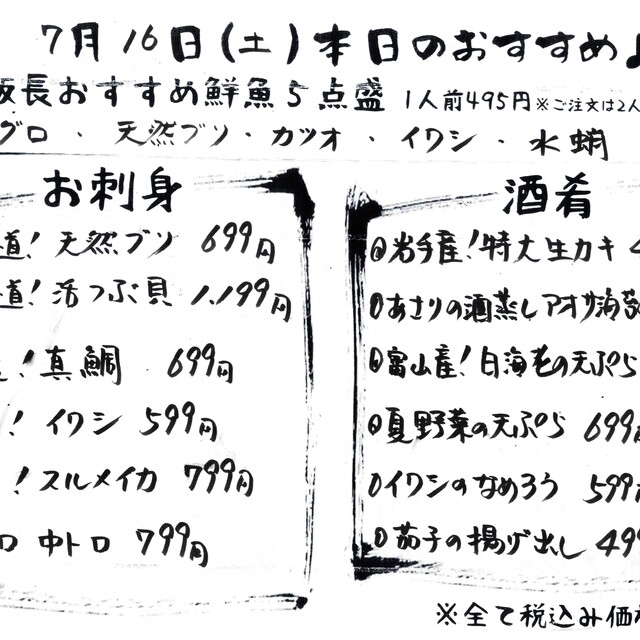 7月16日(土)本日のおすすめ♪
板長おすすめ鮮魚5点盛 1人前495円※ご注文は2人
グロ・天然ブリ・カツオ・イワシ・水蛸
お刺身
道!天然ブリ 699円
道!活つぶ貝 1,199円
!真鯛 699円
!イワシ 599円
!スルメイカ 799円
ロ 中トロ 799円
酒肴
岩手産!特大生カキ 4
あさりの酒蒸しアオサ海苔
富山産!白海老の天ぷら
夏野菜の天ぷら 699円
イワシのなめろう 599円
茄子の揚げ出し 499
※全て税込み価格